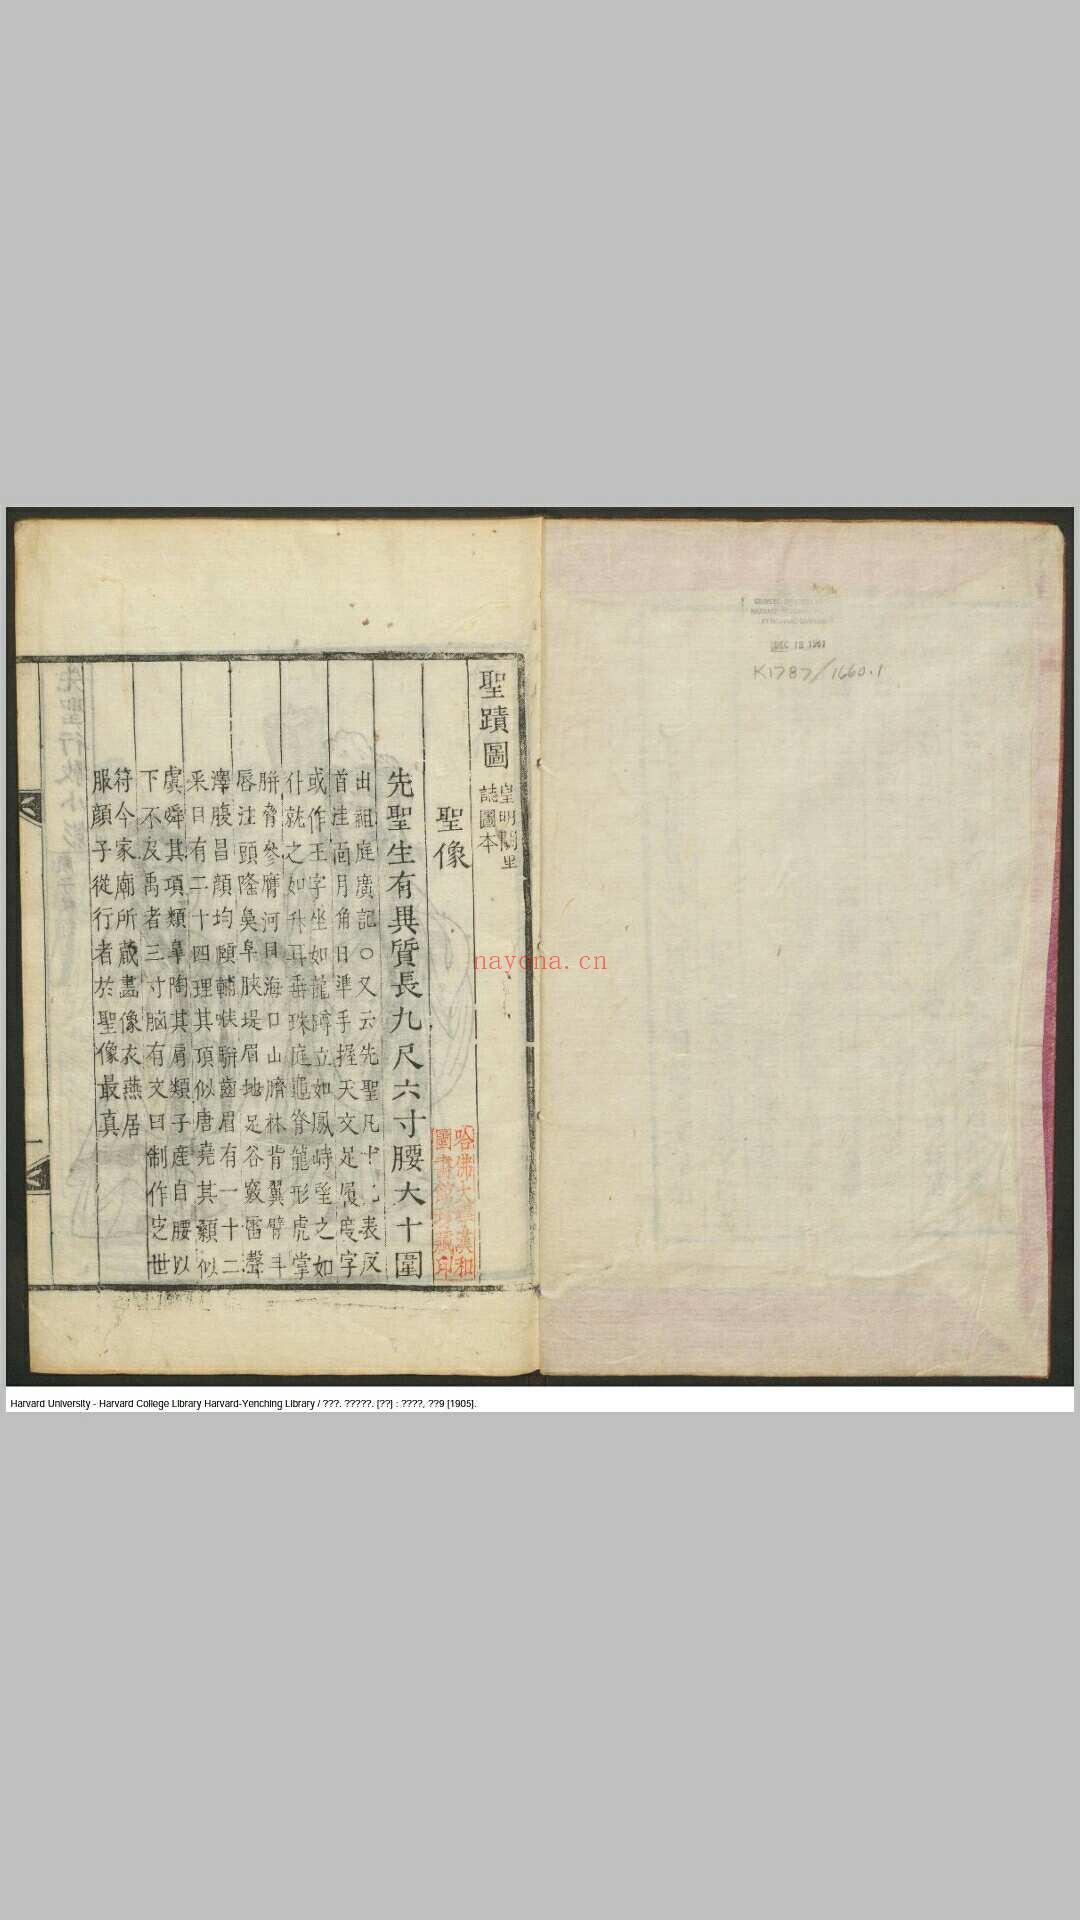 聖蹟圖
皇明闕里
誌圖本
聖像
先聖生有異質長九尺六寸腰大十圍
出祖庭廣記○又云先聖凡 表反
首洼面月角日準手握天文足履度字
或作王字坐如龍蹲立如鳳峙望之如
仆就之如升耳垂珠庭龜脊龍形虎掌
胼脅參膺河目海口山臍林背翼臂斗
唇注頭隆鼻阜脥堤眉地足谷竅雷聲
澤腹昌顏均頤輔喉駢齒眉有一十二
采目有二十四理其頂似唐堯其顙似
虞舜其項類皋陶其肩類子產自腰以
下不及禹者三寸腦有文曰制作定世
符今家廟所藏畫像衣燕居
服顏子從行者於聖像最真
哈佛大學漢和
圖書館珍藏印
DEC 18 1951
K1787/1660.1
nayona.cn
Harvard University - Harvard College Library Harvard-Yenching Library / ???. ?????. [??] : ????, ??9 [1905].